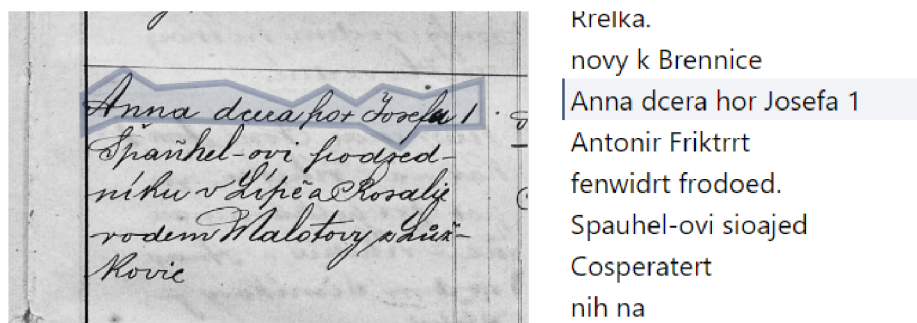 Anna dcera hor Josefa 1
Španhel-ovi podsed-
níku v Lípě a Rosalie
rodem Malotovy z Luž-
kovic
Krelka.
novy k Brennice
Anna dcera hor Josefa 1
Antonir Friktrrt
fenwidrt frodoed.
Spauhel-ovi sioajed
Cosperatert
nih na